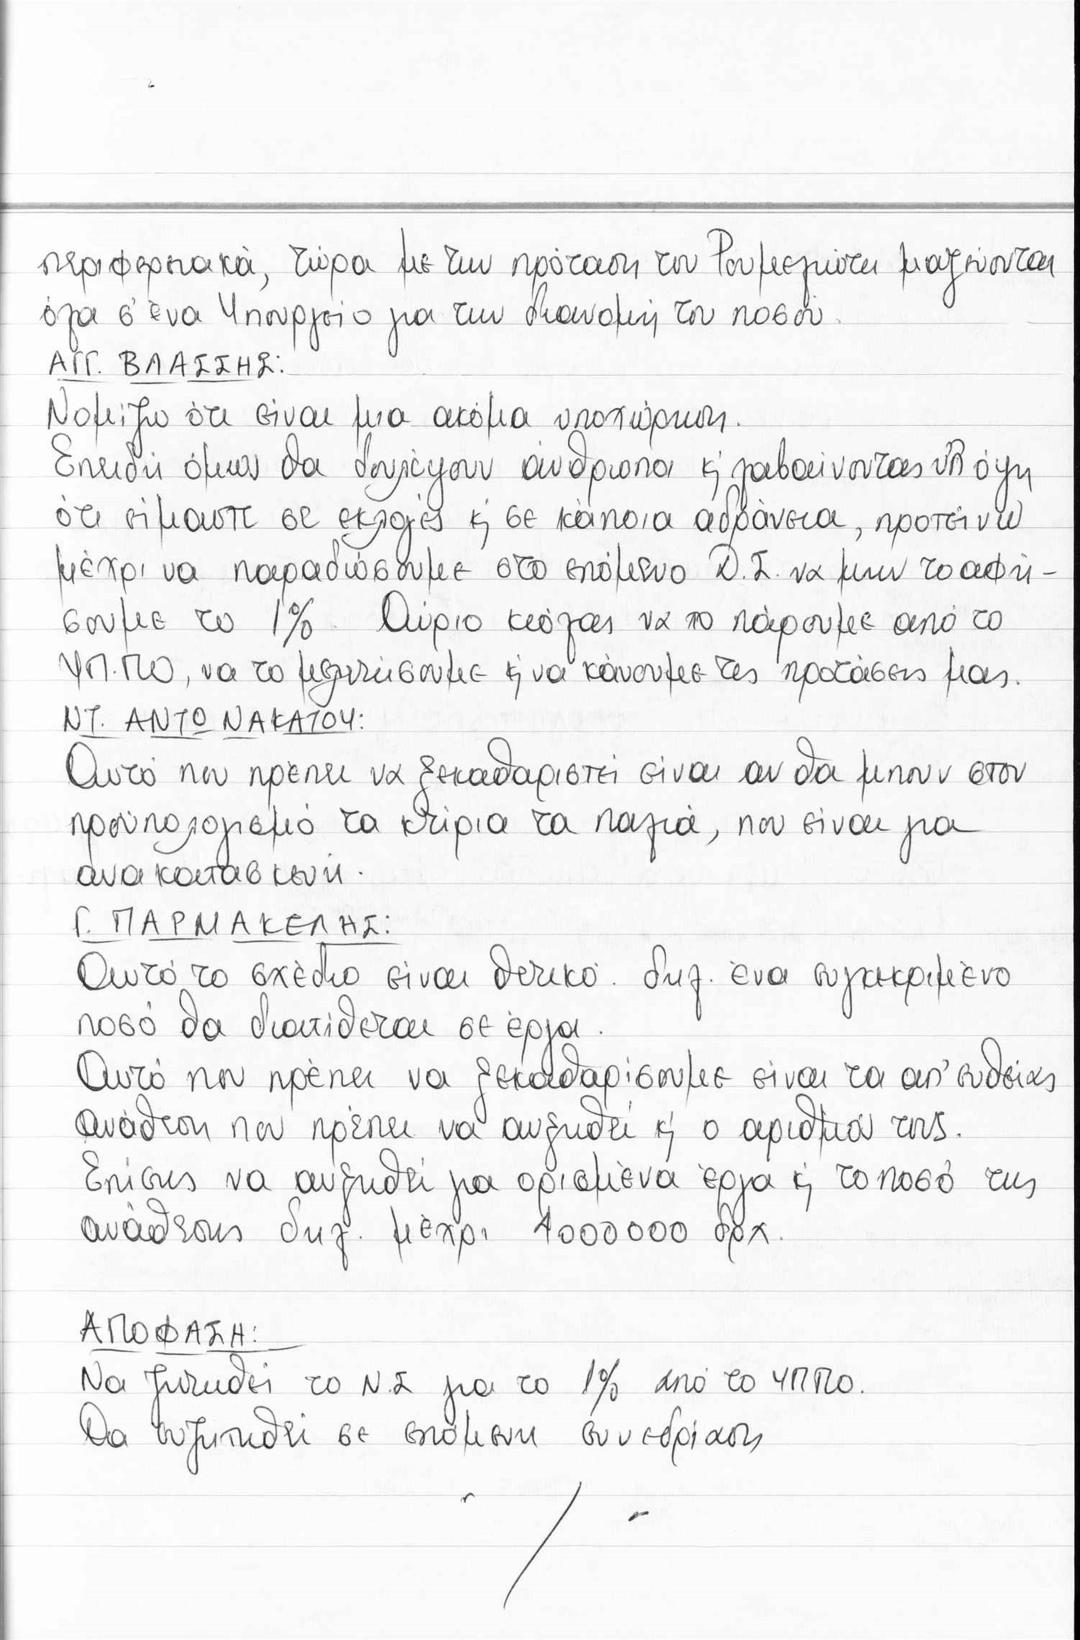 περιφερειακά, τώρα με την πρόταση του Ρουμελιώτη μαζεύονται
όλα σ' ένα Υπουργείο για την διανομή του ποσού.
ΑΓΓ. ΒΛΑΣΣΗΣ:
Νομίζω ότι είναι μια ακόμα υποχώρηση.
Επειδή όμως θα δουλέψουν άνθρωποι κ' λαβαίνοντας υπ' όψη
ότι είμαστε σε εκλογές κ' σε κάποια αδράνεια, προτείνω
μέχρι να παραδώσουμε στο επόμενο Δ.Σ. να μην το αφή-
σουμε το 1%. Αύριο κιόλας να το πάρουμε από το
ΥΠ.ΠΟ, να το μελετήσουμε κ' να κάνουμε τες προτάσεις μας.
ΝΤ. ΑΝΤΩΝΑΚΑΤΟΥ:
Αυτό που πρέπει να ξεκαθαριστεί είναι αν θα μπουν στον
προϋπολογισμό τα κτίρια τα παλιά, που είναι για
ανακατασκευή.
Γ. ΠΑΡΜΑΚΕΛΗΣ:
Αυτό το σχέδιο είναι θετικό. δηλ. ένα συγκεκριμένο
ποσό θα διατίθεται σε έργα.
Αυτό που πρέπει να ξεκαθαρίσουμε είναι τα απ' ευθείας
ανάθεση που πρέπει να αυξηθεί κ' ο αριθμός τους.
Επίσης να αυξηθεί για ορισμένα έργα κ' το ποσό της
ανάθεσης δηλ. μέχρι 1000000 δρχ.
ΑΠΟΦΑΣΗ:
Να ζητηθεί το Ν.Σ για το 1% από το ΥΠΠΟ.
Θα συζητηθεί σε επόμενη συνεδρίαση